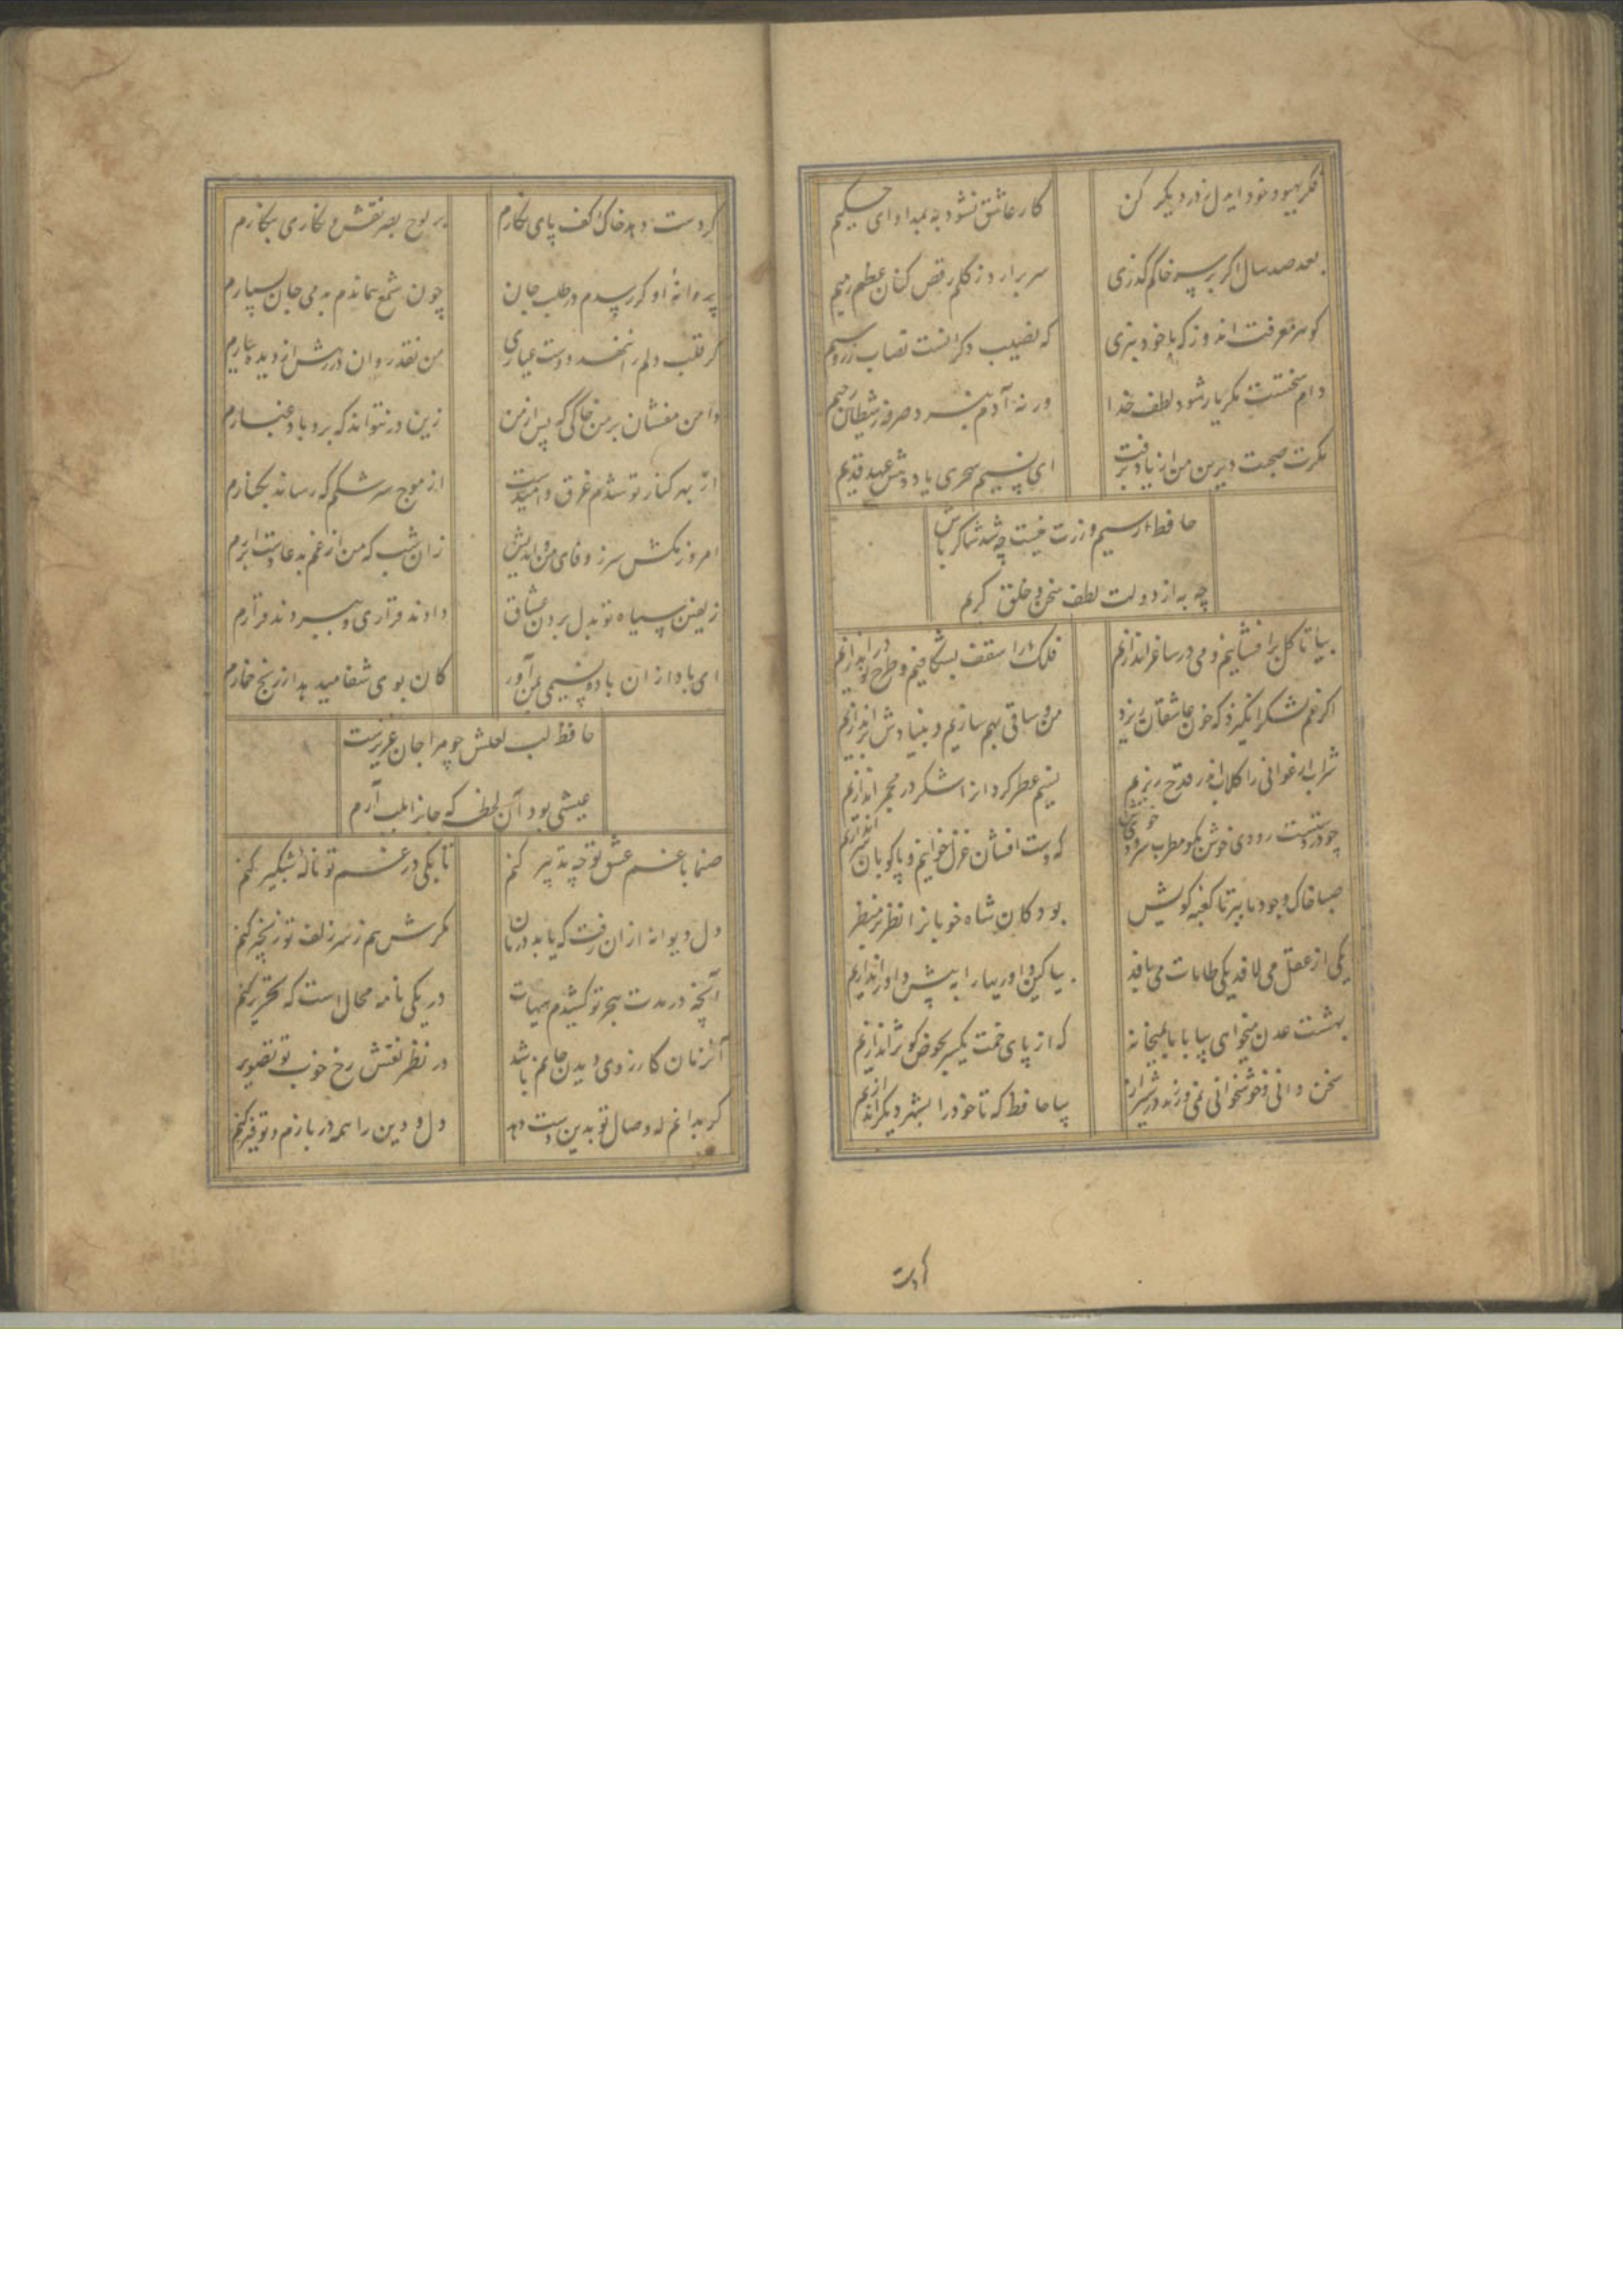 فکر بهبود خود ایدل ز در دیگر کن
کار عاشق نشود به بمداوای حکیم
بعد صد سال اگر بر سر خاکم گذری
سر برارد ز گلم رقص کنان عظم رمیم
گوهر معرفت اندوز که با خود ببری
که نصیب دگرانست نصاب زر و سیم
دام سختست مگر یار شود لطف خدا
ورنه آدم نبرد صرفه ز شیطان رجیم
مگرت صحبت دیرین من از یاد برفت
ای نسیم سحری یاد دهش عهد قدیم
حافظ ار سیم و زرت نیست چه شد شاکر باش
چه به از دولت لطف سخن و خلق کریم
بیا تا گل برافشانیم و می در ساغر اندازیم
فلک را سقف بشکافیم و طرح نو در اندازیم
اگر غم لشکر انگیزد که خون عاشقان ریزد
من و ساقی بهم سازیم و بنیادش براندازیم
شراب ارغوانی را گلاب اندر قدح ریزیم
نسیم عطر کردانرا شکر در مجمر اندازیم
چو در دستست رودی خوش بگو مطرب سرودی خوش
که دست افشان غزل خوانیم و پا کوبان سر اندازیم
صبا خاک وجود ما ببر تا کعبه کویش
بود کان شاه خوبانرا نظر بر منظر
یکی از عقل می لافد یکی طامات می بافد
بیا کین داوریها را به پیش داور اندازیم
بهشت عدن میخواهی بیا با ما بمیخانه
که از پای خمت یکسر بحوض کوثر اندازیم
سخن دانی و خوشخوانی نمی ورزند در شیراز
بیا حافظ که تا خود را بشهر دیگر اندازیم
گر دست
گر دست دهد خاک کف پای نگارم
بر لوح بصر نقش و نگاری بنگارم
پروانه او گر رسدم در طلب جان
چون شمع هماندم به دمی جان سپارم
گر قلب دلم را ننهد دوست عیاری
من نقد روان در رهش از دیده ببارم
دامن مفشان بر من خاکی که پس از من
زین در نتواند که برد باد غبارم
از بهر کنار تو شدم غرق و امیدست
از موج سرشکم که رساند بکنارم
امروز مکش سر ز وفای من و اندیش
زان شب که من از غم به دعا دست برارم
زلفین سیاه تو بدل بردن عشاق
دادند قراری و ببردند قرارم
ای باد از ان باده نسیمی بمن آور
کان بوی شفا میدهد از رنج خمارم
حافظ لب لعلش چو مرا جان عزیزست
عیشی بود آن لحظه که جانرا بلب آرم
صنما با غم عشق تو چه تدبیر کنم
تا بکی در غم تو ناله شبگیر کنم
دل دیوانه از ان رفت که یابد درمان
مگرش هم ز سر زلف تو زنجیر کنم
آنچه در مدت هجر تو کشیدم هیهات
در یکی نامه محال است که تحریر کنم
آنزمان کارزوی دیدن جانم باشد
در نظر نقش رخ خوب تو تصویر
گر بدانم که وصال تو بدین دست دهد
دل و دین را همه در بازم و توفیر کنم